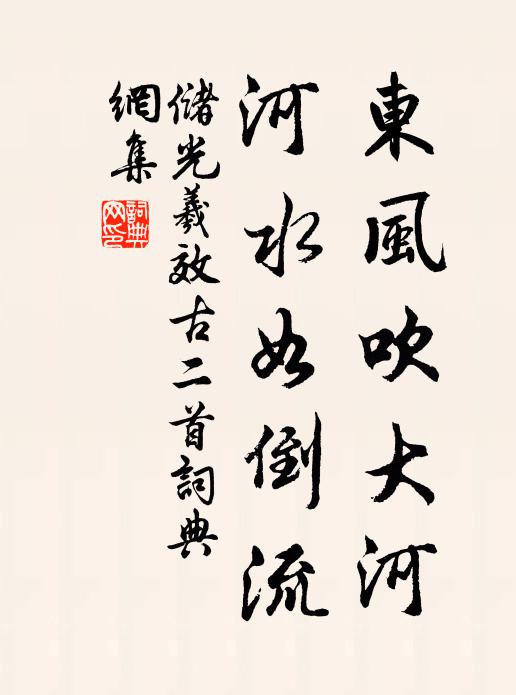 東風吹大河
河水如倒流
儲光羲效古二首詞典
網集
詞典
网印